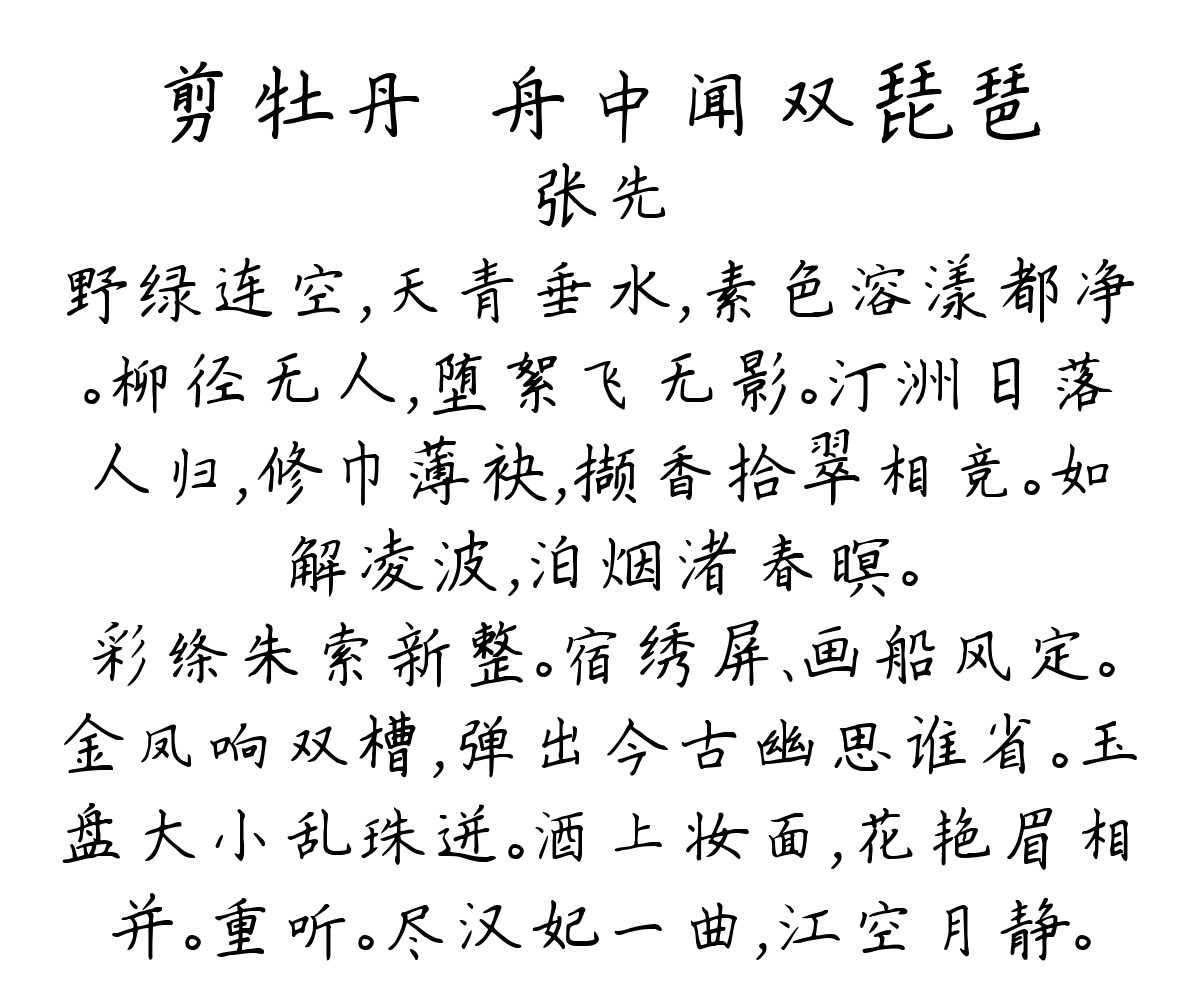 剪牡丹 舟中闻双琵琶
张先
野绿连空,天青垂水,素色溶漾都净
。柳径无人,堕絮飞无影。汀洲日落
人归,修巾薄袂,撷香拾翠相竞。如
解凌波,泊烟渚春暝。
彩绦朱索新整。宿绣屏、画船风定。
金凤响双槽,弹出今古幽思谁省。玉
盘大小乱珠迸。酒上妆面,花艳眉相
并。重听。尽汉妃一曲,江空月静。